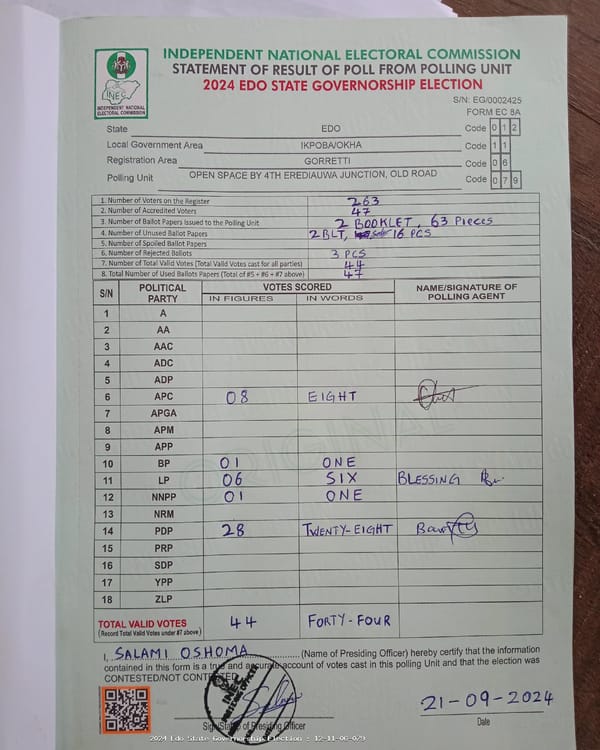 INDEPENDENT NATIONAL ELECTORAL COMMISSION
STATEMENT OF RESULT OF POLL FROM POLLING UNIT
2024 EDO STATE GOVERNORSHIP ELECTION
INEC
INDEPENDENT NATIONAL ELECTORAL COMMISSION
S/N: EG/0002425
FORM EC 8A
State EDO Code 0 1 2
Local Government Area IKPOBA/OKHA Code 1 1
Registration Area GORRETTI Code 0 6
Polling Unit OPEN SPACE BY 4TH EREDIAUWA JUNCTION, OLD ROAD Code 0 7 9
1. Number of Voters on the Register 263
2. Number of Accredited Voters 47
3. Number of Ballot Papers Issued to the Polling Unit 2 BOOKLET, 63 Pieces
4. Number of Unused Ballot Papers 2 BLT, 16 PCS
5. Number of Spoiled Ballot Papers
6. Number of Rejected Ballots 3 PCS
7. Number of Total Valid Votes (Total Valid Votes cast for all parties) 44
8. Total Number of Used Ballots Papers (Total of #5 + #6 + #7 above) 47
S/N POLITICAL PARTY VOTES SCORED NAME/SIGNATURE OF POLLING AGENT
IN FIGURES IN WORDS
1 A
2 AA
3 AAC
4 ADC
5 ADP
6 APC 08 EIGHT
7 APGA
8 APM
9 APP
10 BP 01 ONE
11 LP 06 SIX BLESSING
12 NNPP 01 ONE
13 NRM
14 PDP 28 TWENTY-EIGHT
15 PRP
16 SDP
17 YPP
18 ZLP
ORIGINAL
TOTAL VALID VOTES 44 FORTY-FOUR
(Record Total Valid Votes under #7 above)
I, SALAMI OSHOMA (Name of Presiding Officer) hereby certify that the information
contained in this form is a true and accurate account of votes cast in this polling Unit and that the election was
CONTESTED/NOT CONTESTED
INEC
21-09-2024
Signature of Presiding Officer Date
2024 Edo State Governorship Election - 12-11-06-079